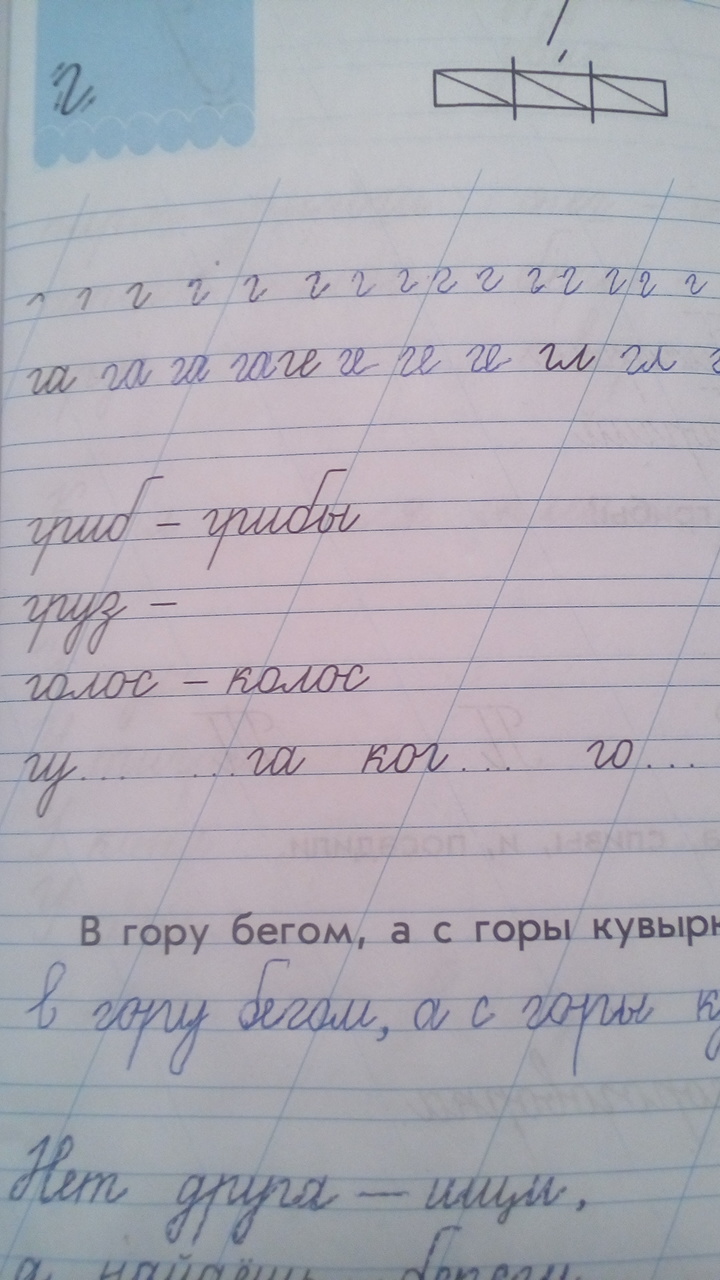 г
г г г г г г г г г г г г г г г
га га га га ге ге ге ге гл гл
гриб – грибы
груз –
голос – колос
гу... ...га ког... го...
В гору бегом, а с горы кувырк
в гору бегом, а с горы ку
Нет друга — ищи,
а найдёшь береги